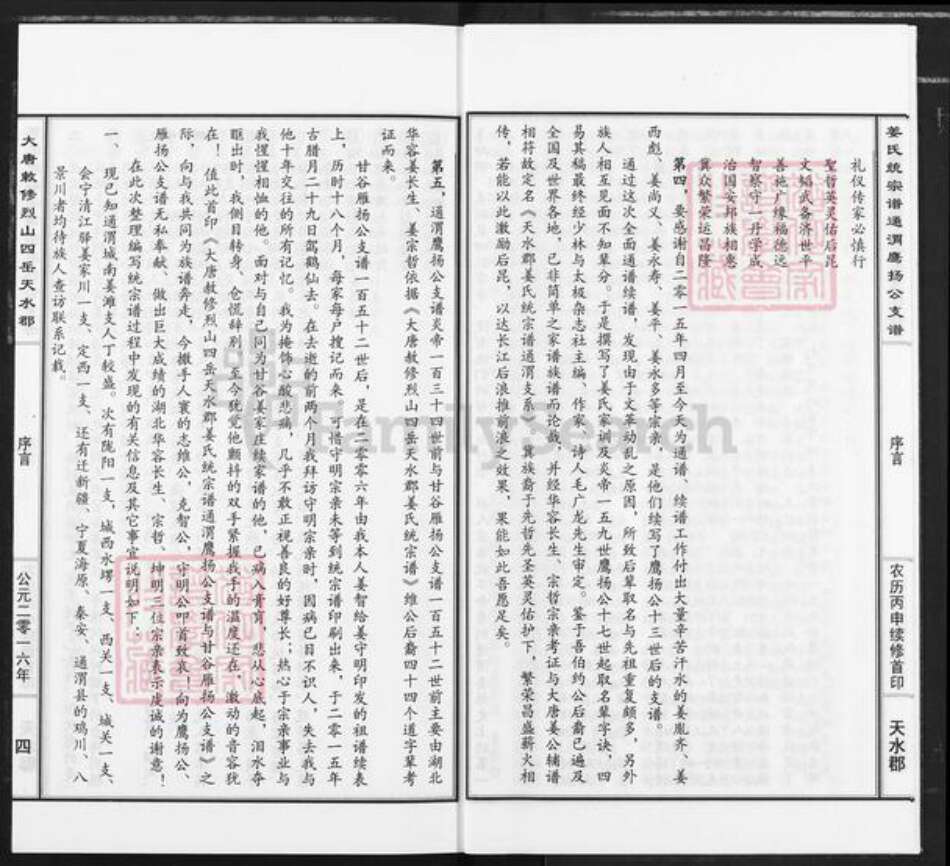 姜氏统宗谱通渭鹰扬公支谱
序言
农历丙申续修首印
天水郡
礼仪传家必慎行
圣哲英灵佑后昆
文韬武备济世平
善施广缘福德远
智察守一丹学成
治国安邦族相惠
冀众繁荣运昌隆
第四，要感谢自二零一五年四月至今天为通谱、续谱工作付出大量辛苦汗水的姜胤齐、姜
西彪、姜尚义、姜永寿、姜平、姜永多等宗亲，是他们续写了鹰扬公十三世后的支谱。
通过这次全面通谱续谱，发现由于文革动乱之原因，所致后辈取名与先祖重复颇多，另外
族人相互见面不知辈分。于是撰写了姜氏家训及炎帝一五九世鹰扬公十七世起取名辈字诀，四
易其稿最终经少林与太极杂志社主编、作家、诗人毛广龙先生审定。鉴于吾伯约公后裔已遍及
全国及世界各地，已非简单之家谱族谱而论哉，并经华容长生、宗哲宗亲考证与大唐姜公辅谱
相符故定名《天水郡姜氏统宗谱通渭支系》冀族裔于先哲先圣英灵佑护下，繁荣昌盛薪火相
传，若能以此激励后昆，以达长江后浪推前浪之效果，果能如此吾愿足矣。
第五，通渭鹰扬公支谱炎帝一百三十四世前与甘谷雁扬公支谱一百五十二世前主要由湖北
华容姜长生、姜宗哲依据《大唐敕修烈山四岳天水郡姜氏统宗谱》维公后裔四十四个道字辈考
证而来。
甘谷雁扬公支谱一百五十二世后，是在二零零六年由我本人姜智给姜守明印发的祖谱续表
上，历时十八个月，每家每户搜记而来。可惜守明宗亲未等到统宗谱印刷出来，于二零一五年
古腊月二十九日驾鹤仙去。在去逝的前两个月我拜访守明宗亲时，因病已目不识人，失去我与
他十年交往的所有记忆。我为掩饰心酸悲痛，几乎不敢正视善良的好尊长；热心于宗亲事业与
我惺惺相恤的他。面对与自己同为甘谷姜家庄续家谱的他，已病入膏肓，悲从心底起，泪水夺
眶出时，我侧目转身、仓慌辞别。至今犹觉他颤抖的双手紧握我手的温度还在，激动的音容犹
在！值此首印《大唐敕修烈山四岳天水郡姜氏统宗谱通渭鹰扬公支谱与甘谷雁扬公支谱》之
际，向与我共同为族谱奔走，今撒手人寰的志维公，克智公，守明公叩首致哀！向为鹰扬公、
雁扬公支谱无私奉献、做出巨大成绩的湖北华容长生、宗哲、坤明三位宗亲表示虔诚的谢意！
在此次整理编写统宗谱过程中发现的有关信息及其它事宜说明如下：
一、现已知通渭城南姜滩支人丁较盛。次有陇阳一支，城西水堺一支、西关一支、城关一支、
会宁清江驿姜家川一支、定西一支、还有迁新疆、宁夏海原、秦安、通渭县的鸡川、八
景川者均待族人查访联系记载。
大唐敕修烈山四岳天水郡
序言
公元二零一六年
四
FamilySearch